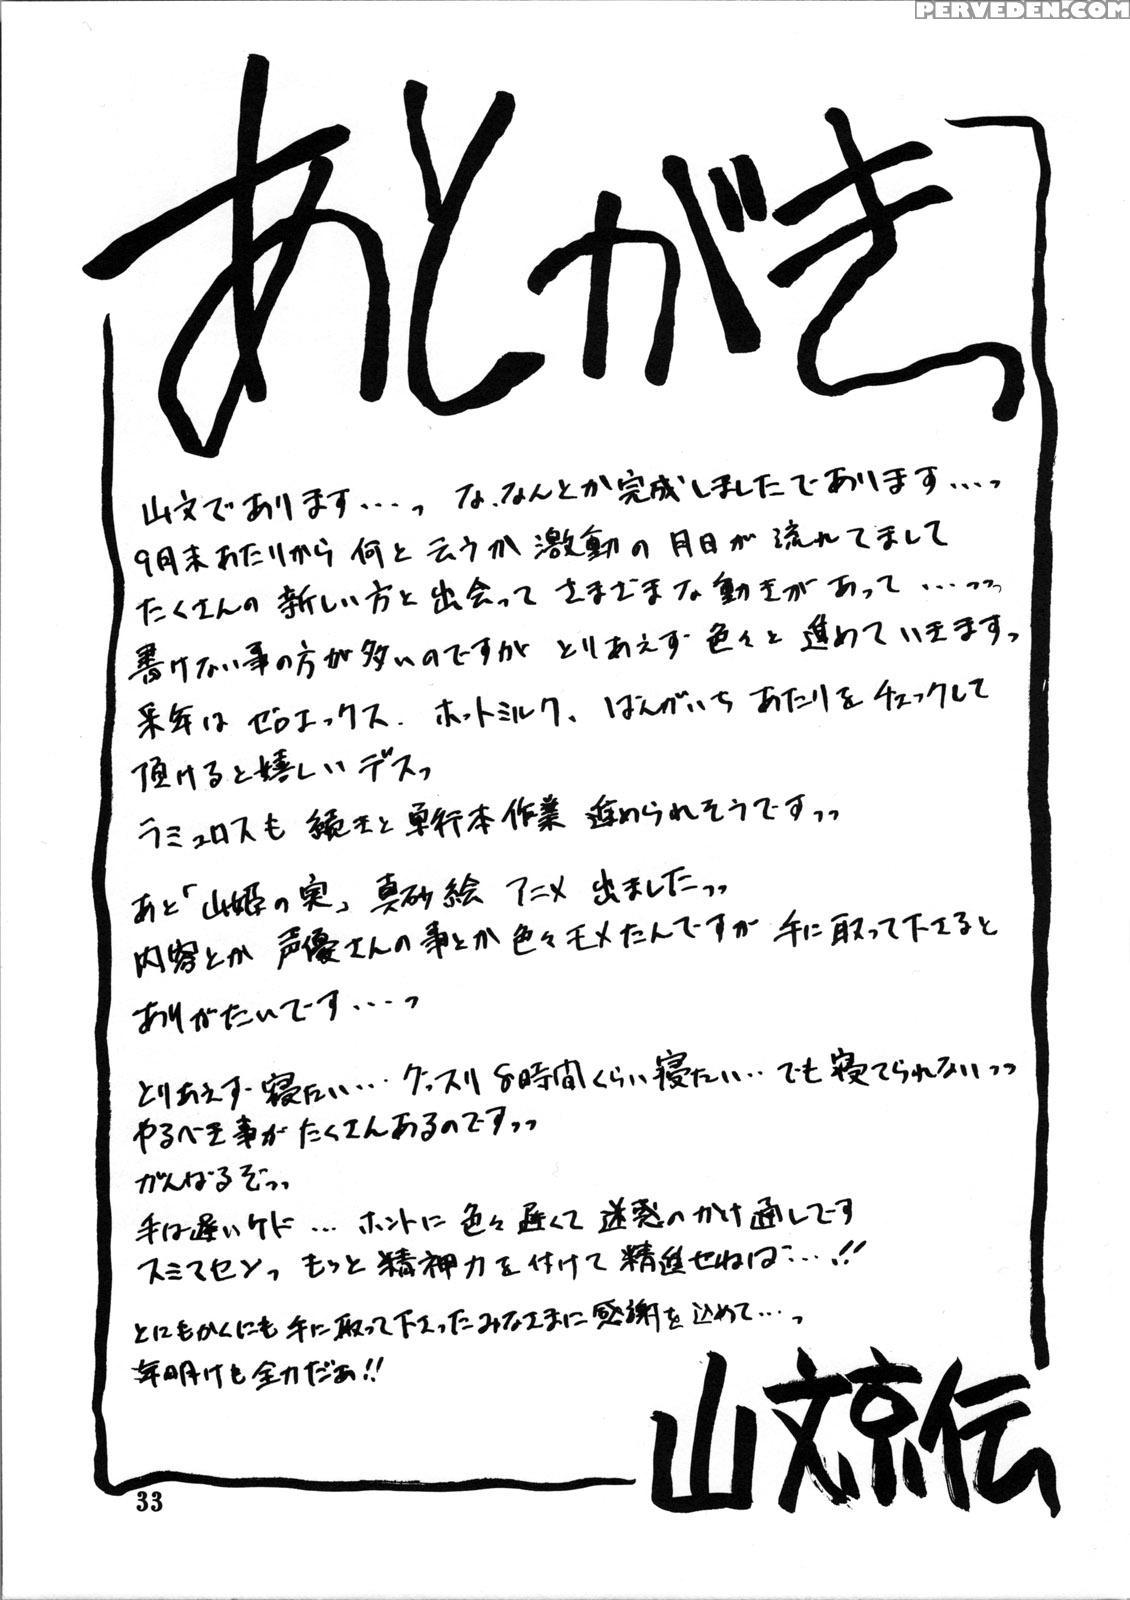 PERVEDEN.COM
あとがきっ
山文であります・・・っ な、なんとか完成しましたであります・・・っ
9月末あたりから 何と云うか 激動の月日が流れてまして
たくさんの新しい方と出会って さまざまな動きがあって ・・・っっ
書けない事の方が多いのですが とりあえず 色々と進めていきますっ
来年は ゼロエックス、ホットミルク、ばんがいち あたりをチェックして
頂けると嬉しいデスっ
ラミュロスも 続きと単行本作業 進められそうですっっ
あと「山姫の実」真砂絵 アニメ 出ましたっっ
内容とか 声優さんの事とか色々モメたんですが 手に取って下さると
ありがたいです・・・っ
とりあえず 寝たい・・・グッスリ 8時間くらい寝たい・・でも寝てられないっっ
やるべき事がたくさんあるのですっっ
がんばるぞっっ
手は遅いケド ・・・ ホントに色々遅くて 迷惑のかけ通しです
スミマセンっ もっと精神力を付けて精進せねば・・・!!
とにもかくにも手に取って下さったみなさまに感謝を込めて・・・っ
年明けも全力だぁ!!
山文京伝
33